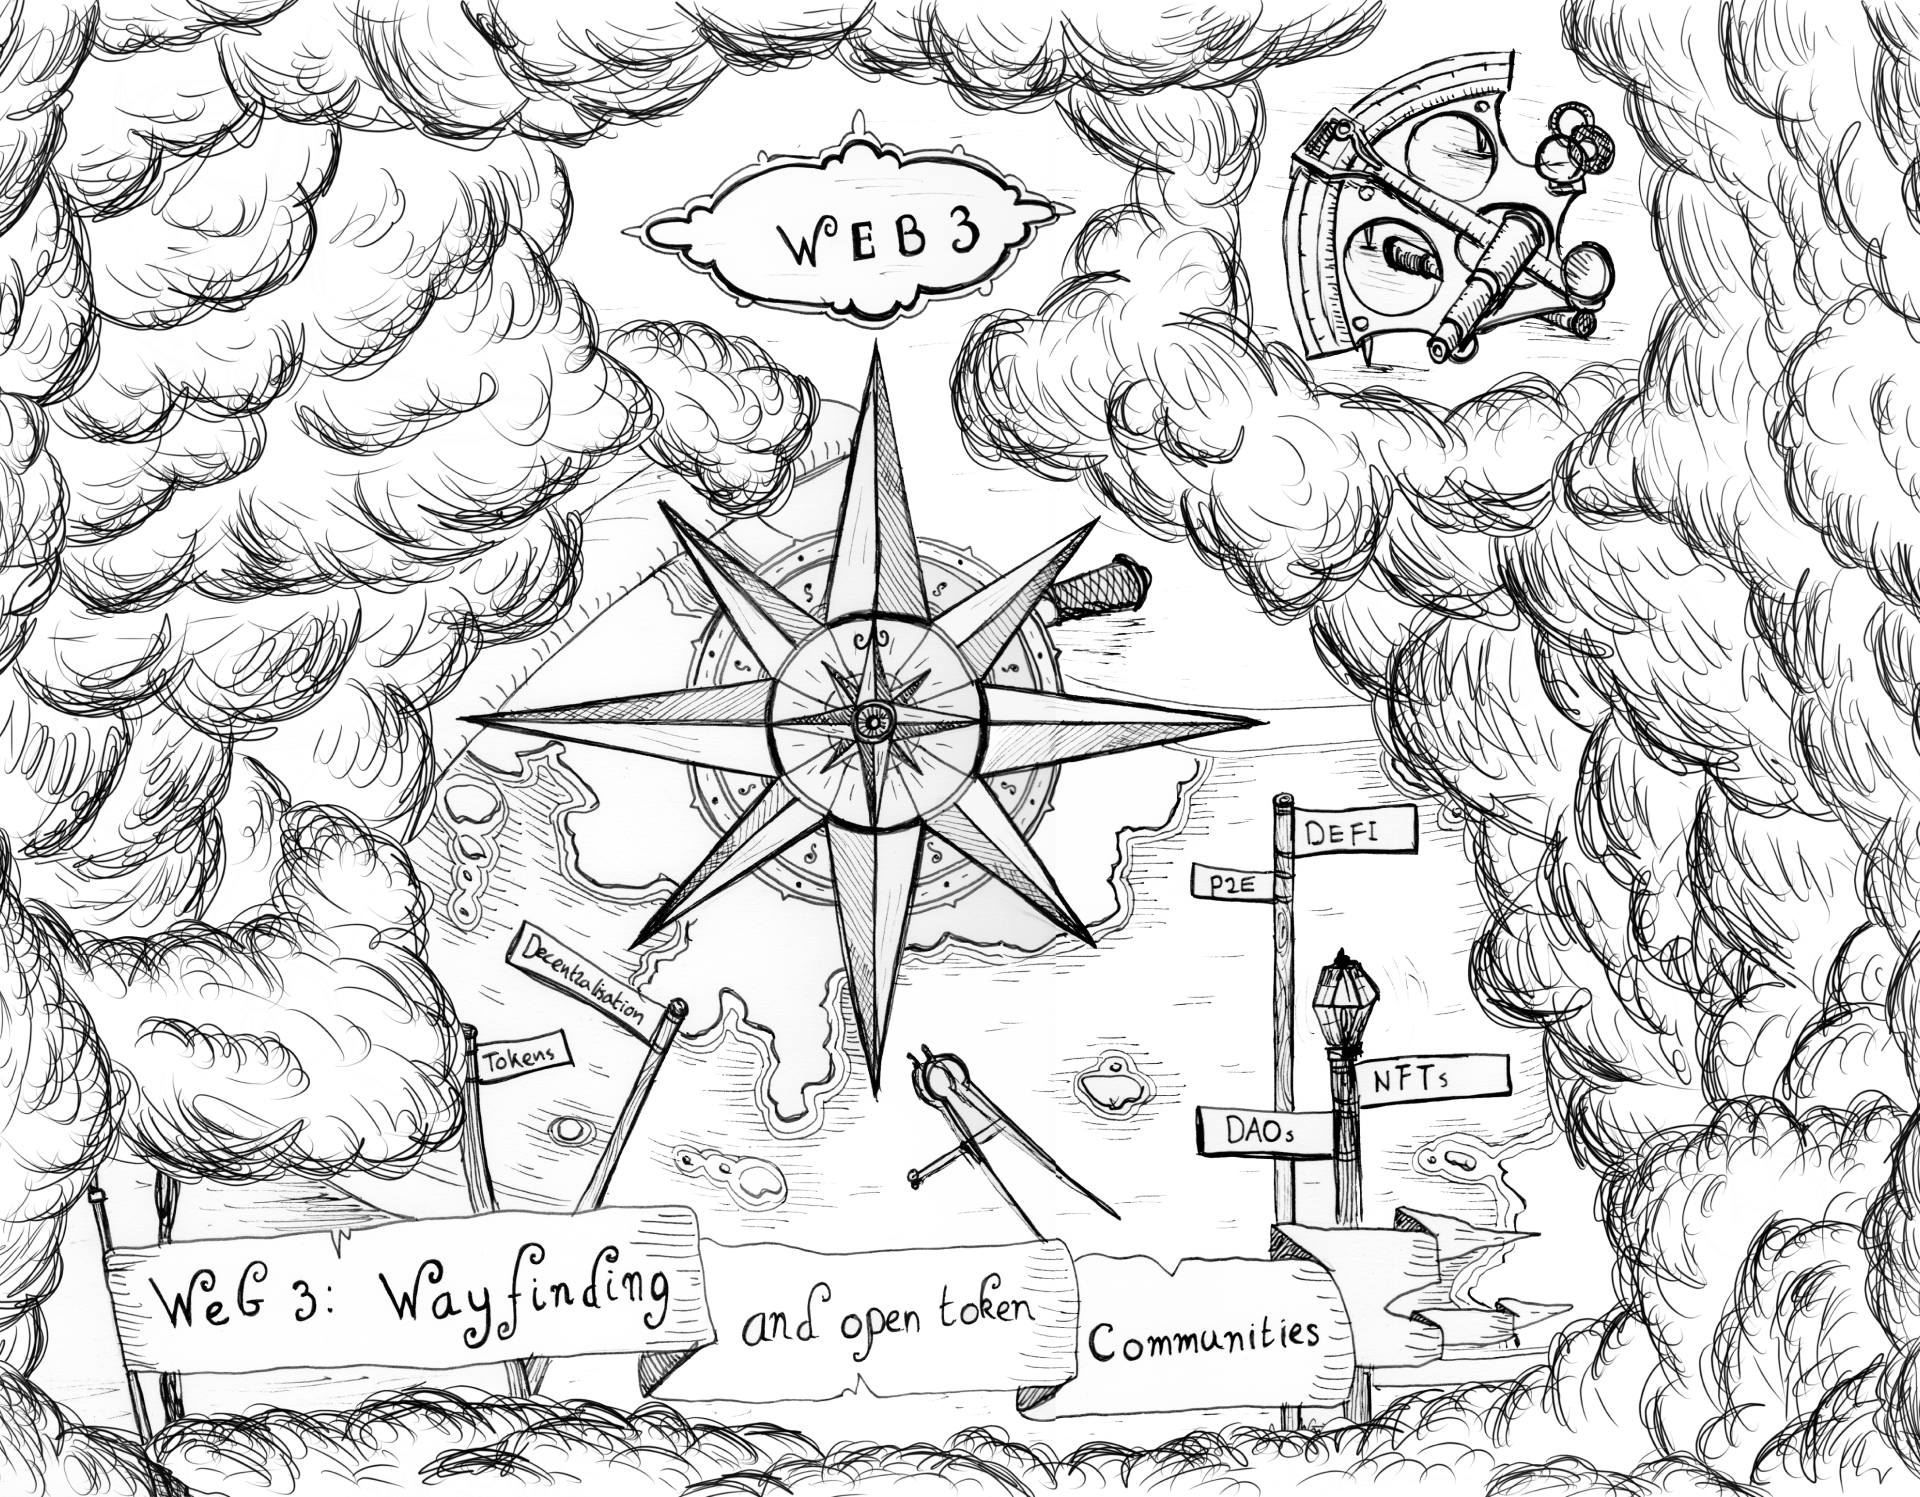 WEB 3
DEFI
P2E
Decentralisation
Tokens
NFTs
DAOs
WeB 3: Wayfinding
and open token
Communities